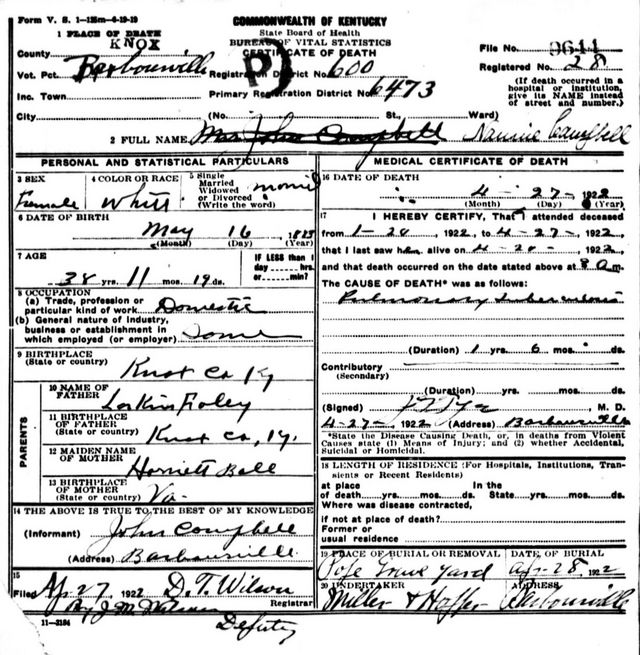 Form V. S. 1-125m-6-19-19
COMMONWEALTH OF KENTUCKY
State Board of Health
BUREAU OF VITAL STATISTICS
CERTIFICATE OF DEATH
1 PLACE OF DEATH
County KNOX
File No. 9644
Registered No. 28
Vot. Pct. Barbourville
Registration District No. 600
(If death occurred in a hospital or institution, give its NAME instead of street and number.)
Inc. Town
Primary Registration District No. 6473
City
(No. St. Ward)
2 FULL NAME Mrs John Campbell Nannie Campbell
PERSONAL AND STATISTICAL PARTICULARS
3 SEX
Female
4 COLOR OR RACE
White
5 Single
Married
Widowed
or Divorced
(Write the word)
6 DATE OF BIRTH
May 16
(Month) (Day) (Year)
7 AGE
38 yrs. 11 mos. 19 ds.
IF LESS than 1
day hrs.
or min?
8 OCCUPATION
(a) Trade, profession or
particular kind of work Domestic
(b) General nature of industry,
business or establishment in
which employed (or employer)
9 BIRTHPLACE
(State or country)
Knox Co Ky
PARENTS
10 NAME OF
FATHER
Larkin Foley
11 BIRTHPLACE
OF FATHER
(State or country)
Knox Co, Ky.
12 MAIDEN NAME
OF MOTHER
Harriett Ball
13 BIRTHPLACE
OF MOTHER
(State or country)
Va.
14 THE ABOVE IS TRUE TO THE BEST OF MY KNOWLEDGE
(Informant) John Campbell
(Address) Barbourville
15
Filed Apr 27, 1922 D. T. Wilson
Registrar
By J. M.
Deputy
11-3184
MEDICAL CERTIFICATE OF DEATH
16 DATE OF DEATH
4-27-1922
(Month) (Day) (Year)
17 I HEREBY CERTIFY, That I attended deceased
from 1-28, 1922, to 4-27-, 1922,
that I last saw her alive on 4-20-, 1922,
and that death occurred on the date stated above at 8 a m.
The CAUSE OF DEATH* was as follows:
Pulmonary Tuberculosis
(Duration) 1 yrs. 6 mos. ds.
Contributory
(Secondary)
(Duration) yrs. mos. ds.
(Signed) M. D.
4-27-, 1922 (Address) Barbourville
*State the Disease Causing Death, or, in deaths from Violent
Causes state (1) Means of Injury; and (2) whether Accidental,
Suicidal or Homicidal.
18 LENGTH OF RESIDENCE (For Hospitals, Institutions, Transients or Recent Residents)
at place In the
of death yrs. mos. ds. State yrs. mos. ds.
Where was disease contracted,
if not at place of death?
Former or
usual residence
19 PLACE OF BURIAL OR REMOVAL
Pope Grave Yard
DATE OF BURIAL
Apr 28, 1922
20 UNDERTAKER
Miller & Hoffer
ADDRESS
Barbourville